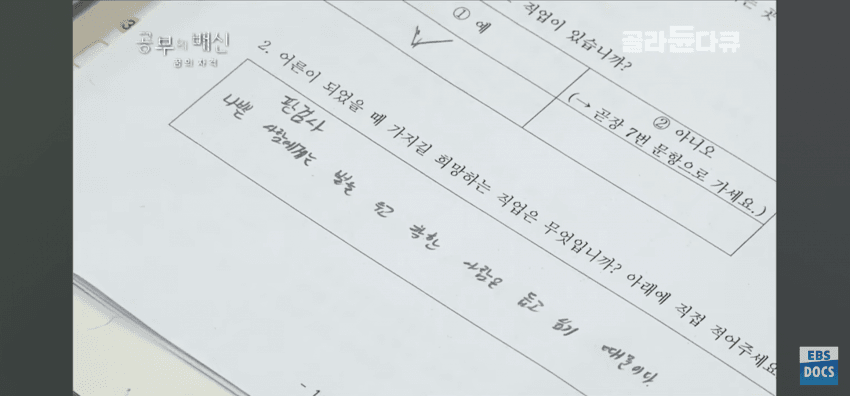 ③
공부의 배신
꿈의 자격
골라듄다큐
직업이 있습니까?
① 예
② 아니오
(→ 곧장 7번 문항으로 가세요.)
2. 어른이 되었을 때 가지길 희망하는 직업은 무엇입니까? 아래에 직접 적어주세요
판검사
나쁜 사람에게는 벌을 주고 착한 사람은 돕고 싶기 때문이다.
- 1
EBS
DOCS